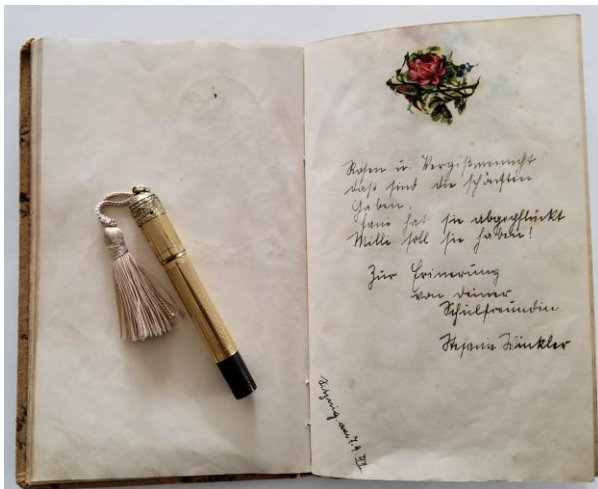 Rosen u. Vergißmeinnicht
daß sind die schönsten
Gaben.
Fani hat sie abgepflückt
Milli soll sie haben!
Zur Erinerung
von deiner
Schulfreundin
Stefanie Winkler
am 7.4.